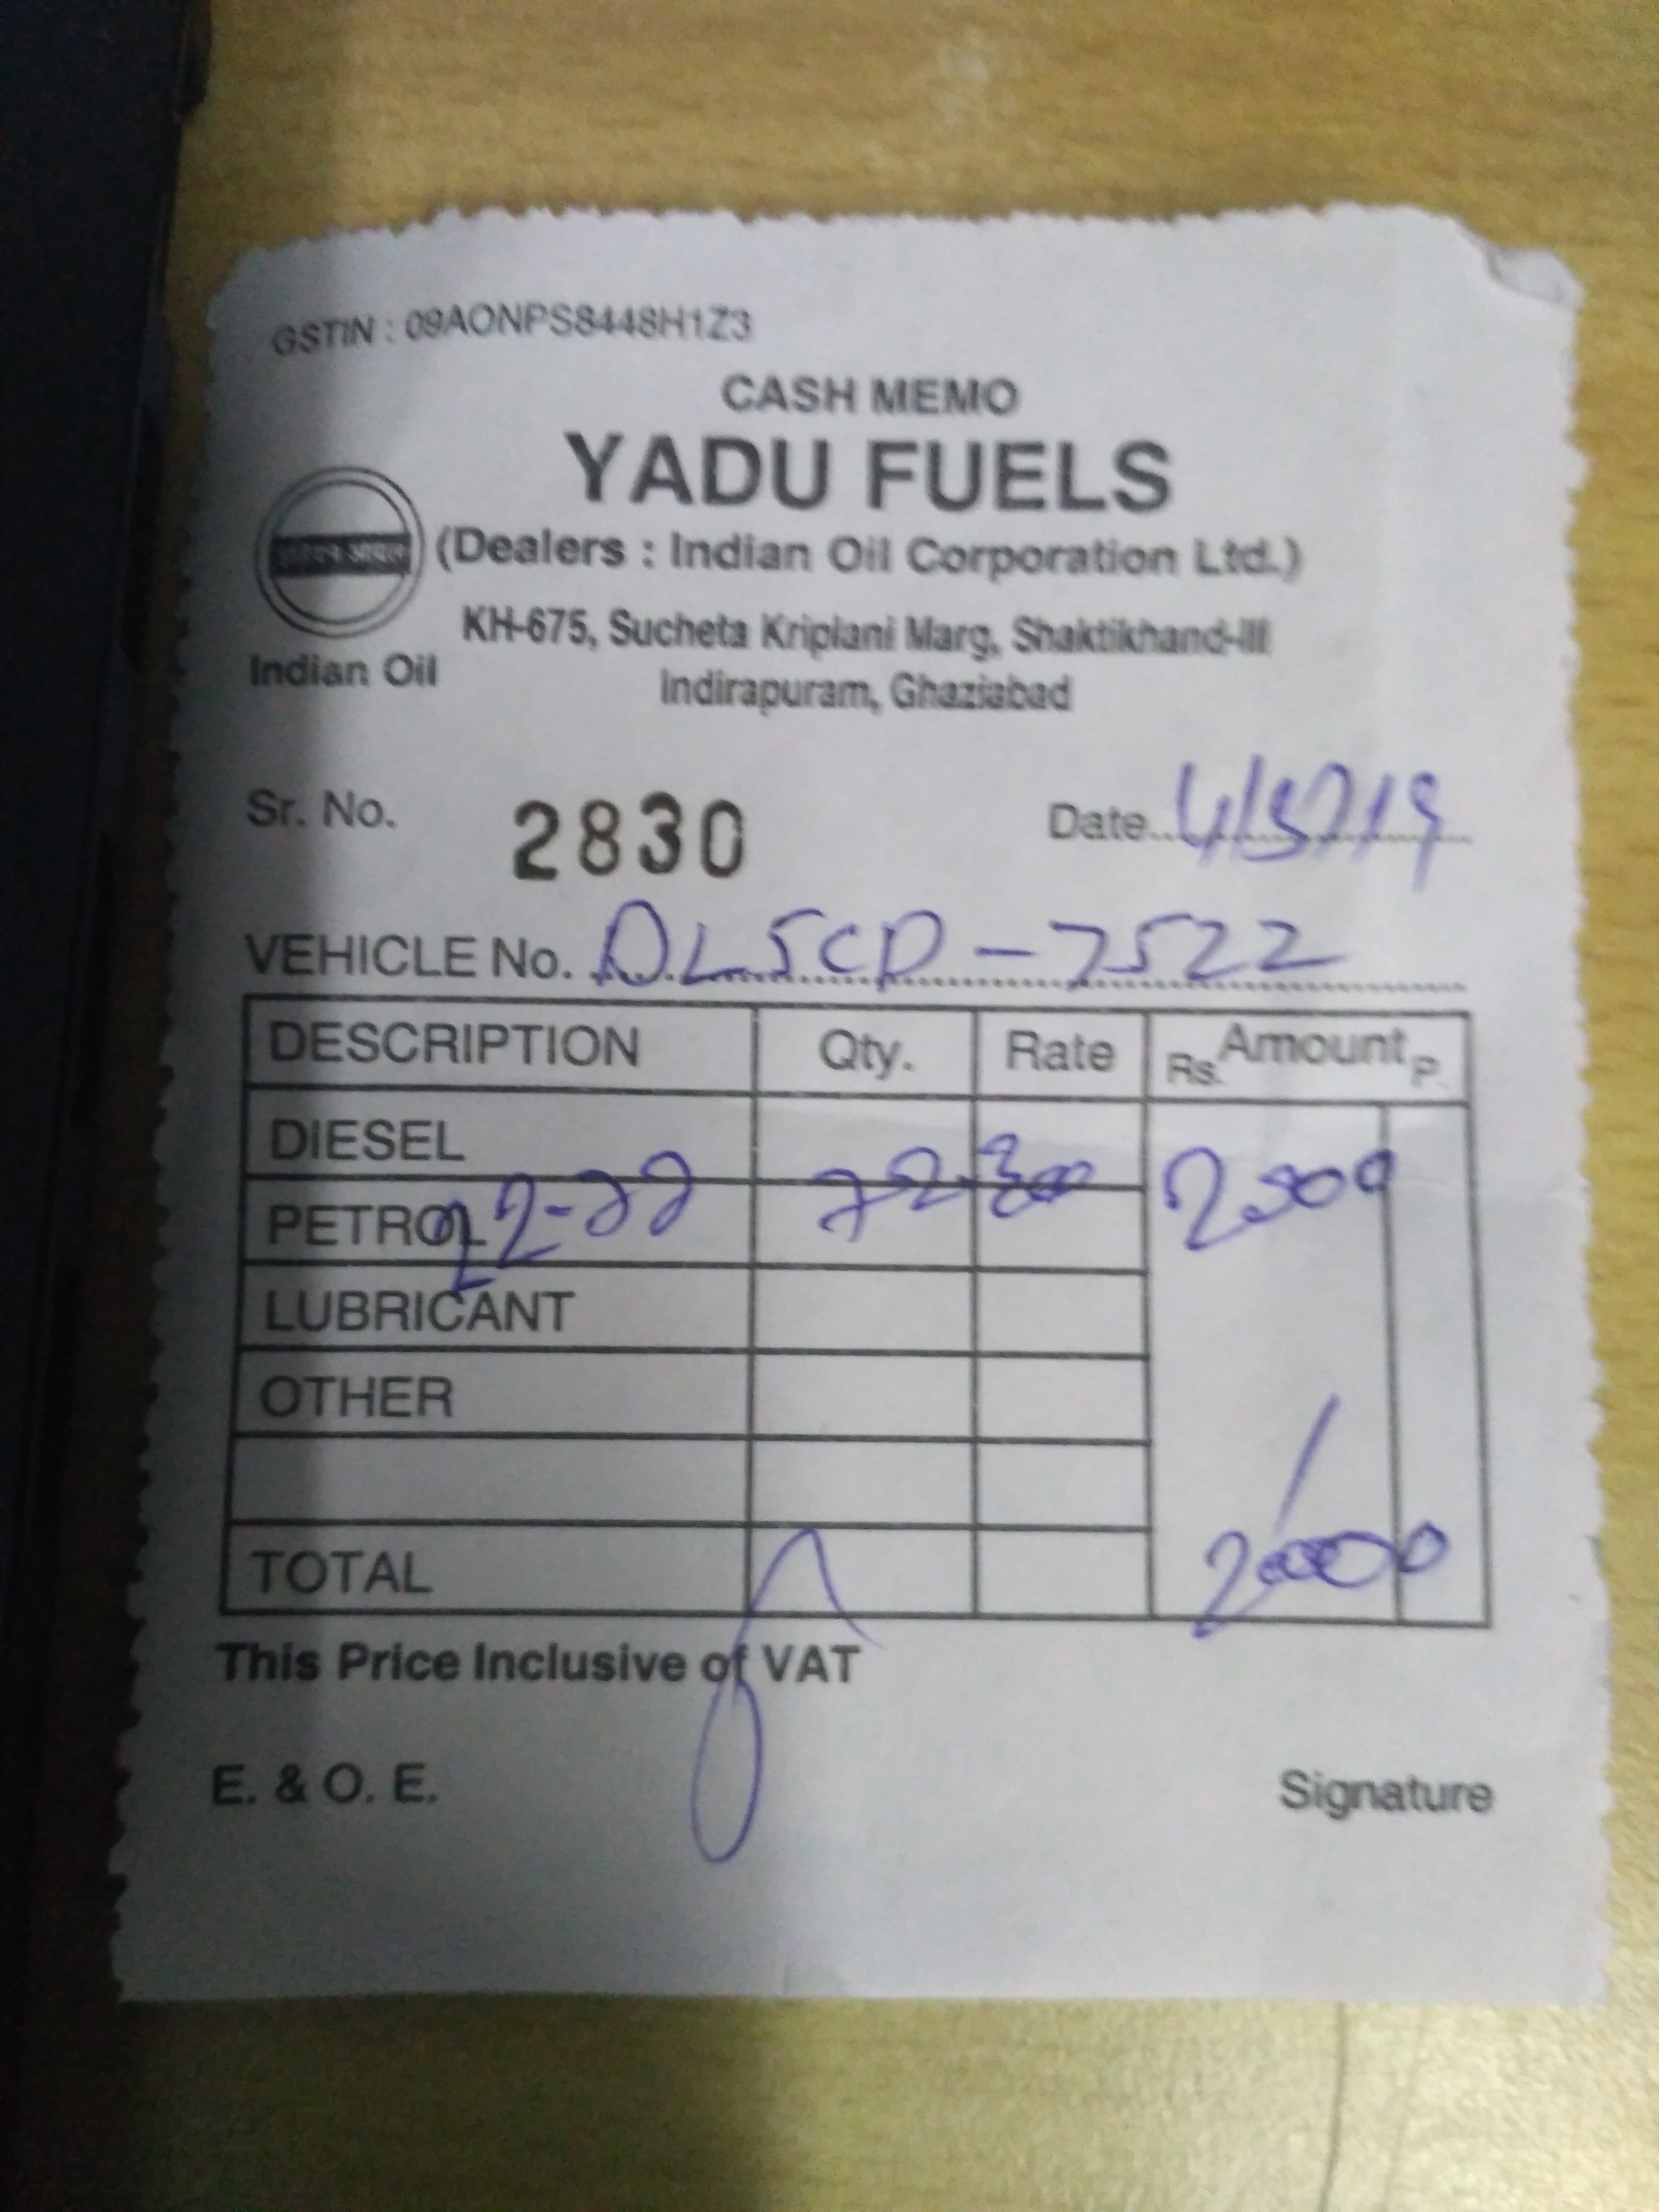 GSTIN : 09AONPS8448H1Z3
CASH MEMO
YADU FUELS
(Dealers : Indian Oil Corporation Ltd.)
KH-675, Sucheta Kriplani Marg, Shaktikhand-III
Indirapuram, Ghaziabad
Indian Oil
Sr. No. 2830 Date 4/5/19
VEHICLE No. DL5CD-7522
DESCRIPTION Qty. Rate Rs. Amount P.
DIESEL
PETROL 72.30
LUBRICANT
OTHER
TOTAL 2000
This Price Inclusive of VAT
E. & O. E. Signature